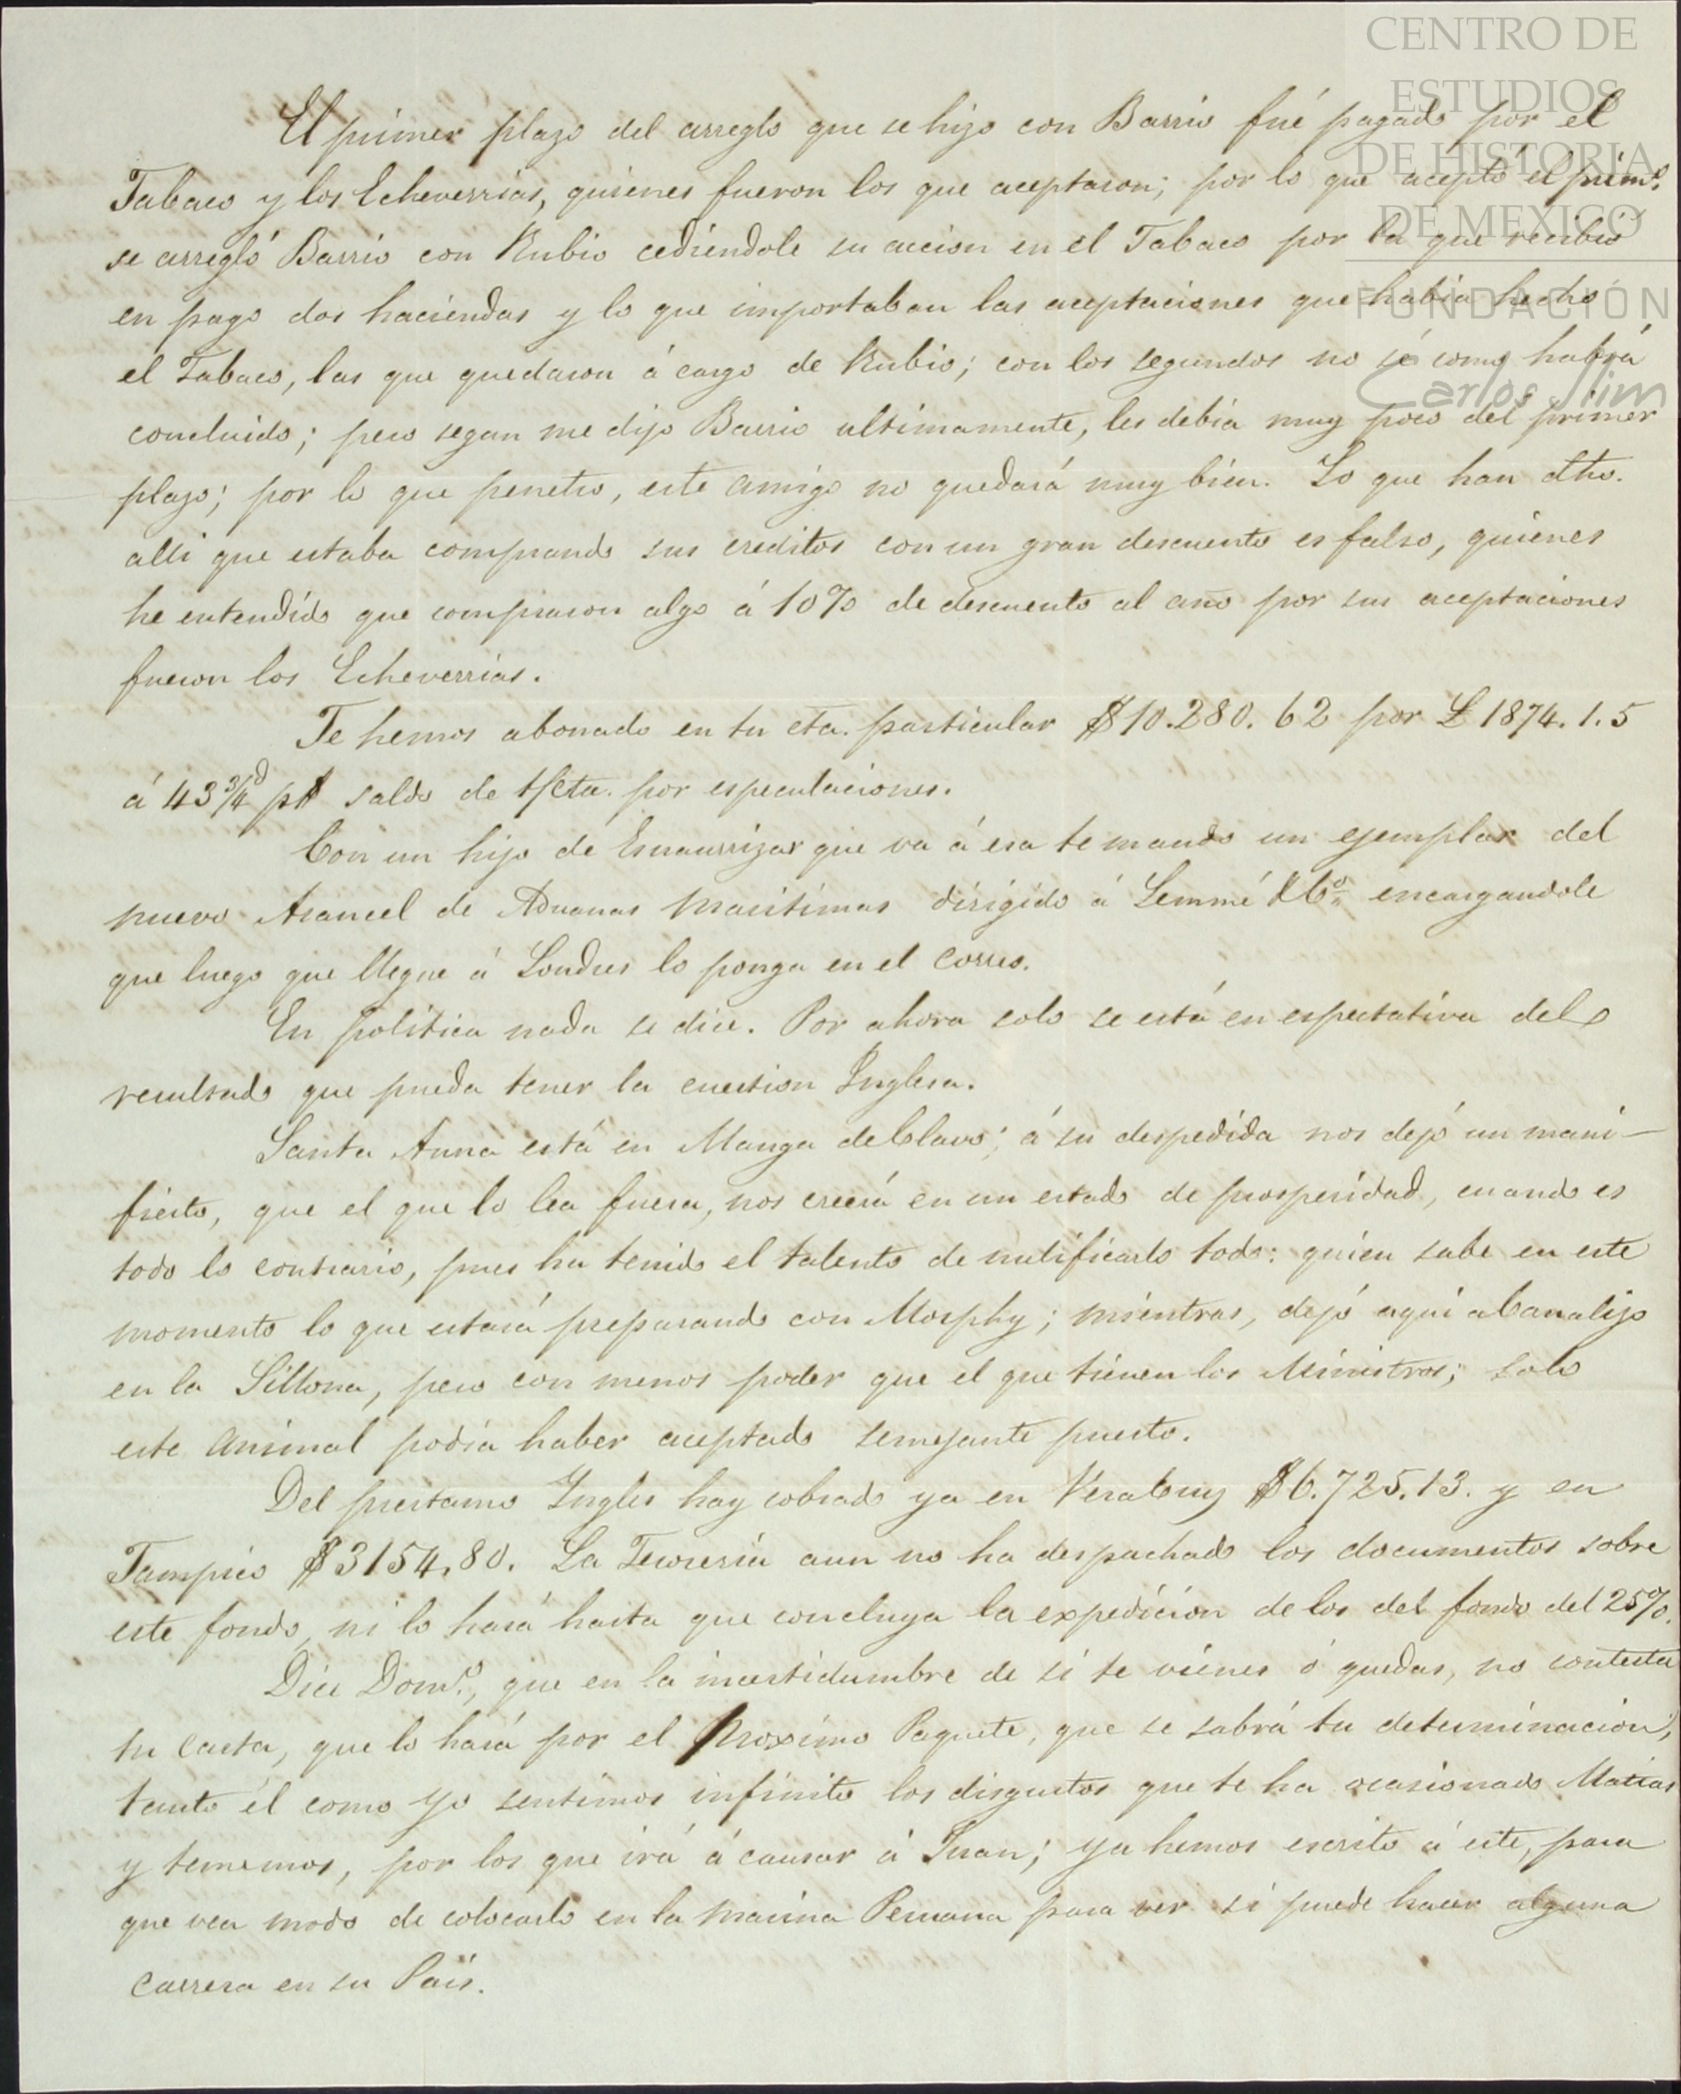 El primer plazo del arreglo que se hizo con Barrio fué pagado por el
Tabaco y los Echeverrias, quienes fueron los que aceptaron; por lo que aceptó el prim.o
se arregló Barrio con Rubio cediendole su accion en el Tabaco por la que recibió
en pago dos haciendas y lo que importaban las aceptaciones que habia hecho
el Tabaco, las que quedaron á cargo de Rubio; con los segundos no sé como habrá
concluido; pero segun me dijo Barrio ultimamente, les debia muy poco del primer
plazo; por lo que penetro, este amigo no quedará muy bien. Lo que han dho.
alli que estaba comprando sus creditos con un gran descuento es falso, quienes
he entendido que compraron algo á 10% de descuento al año por sus aceptaciones
fueron los Echeverrias.
Te hemos abonado en tu cta. particular $10.280.62 por £1874.1.5
á 43 3/4d p$ saldo de t/cta. por especulaciones.
Con un hijo de Esnaurrizar que va á esa te mando un ejemplar del
nuevo Arancel de Aduanas Maritimas dirigido á Lemmé & Co. encargandole
que luego que llegue á Londres lo ponga en el correo.
En politica nada se dice. Por ahora solo se está en espectativa del
resultado que pueda tener la cuestion Inglesa.
Santa Anna está en Manga de Clavo; á su despedida nos dejó un mani-
fiesto, que el que lo lea fuera, nos creerá en un estado de prosperidad, cuando es
todo lo contrario, pues ha tenido el talento de nulificarlo todo: quien sabe en este
momento lo que estará preparando con Morphy; mientras, dejó aqui a Canalizo
en la Sillona, pero con menos poder que el que tienen los Ministros; solo
este animal podia haber aceptado semejante puesto.
Del prestamo Ingles hay cobrado ya en VeraCruz $6.725.13. y en
Tampico $3154.80. La Tesoreria aun no ha despachado los documentos sobre
este fondo, ni lo hará hasta que concluya la expedicion de los del fondo del 25%.
Dice Dom.o, que en la incertidumbre de si te vienes ó quedas, no contesta
tu carta, que lo hará por el Proximo Paquete, que se sabrá tu determinacion,
tanto él como yo sentimos infinito los disgustos que te ha ocasionado Matias
y tememos, por los que irá á causar á Juan; ya hemos escrito á este, para
que vea modo de colocarlo en la marina Peruana para ver si puede hacer alguna
carrera en su Pais.
CENTRO DE
ESTUDIOS
DE HISTORIA
DE MEXICO
FUNDACIÓN
Carlos Slim